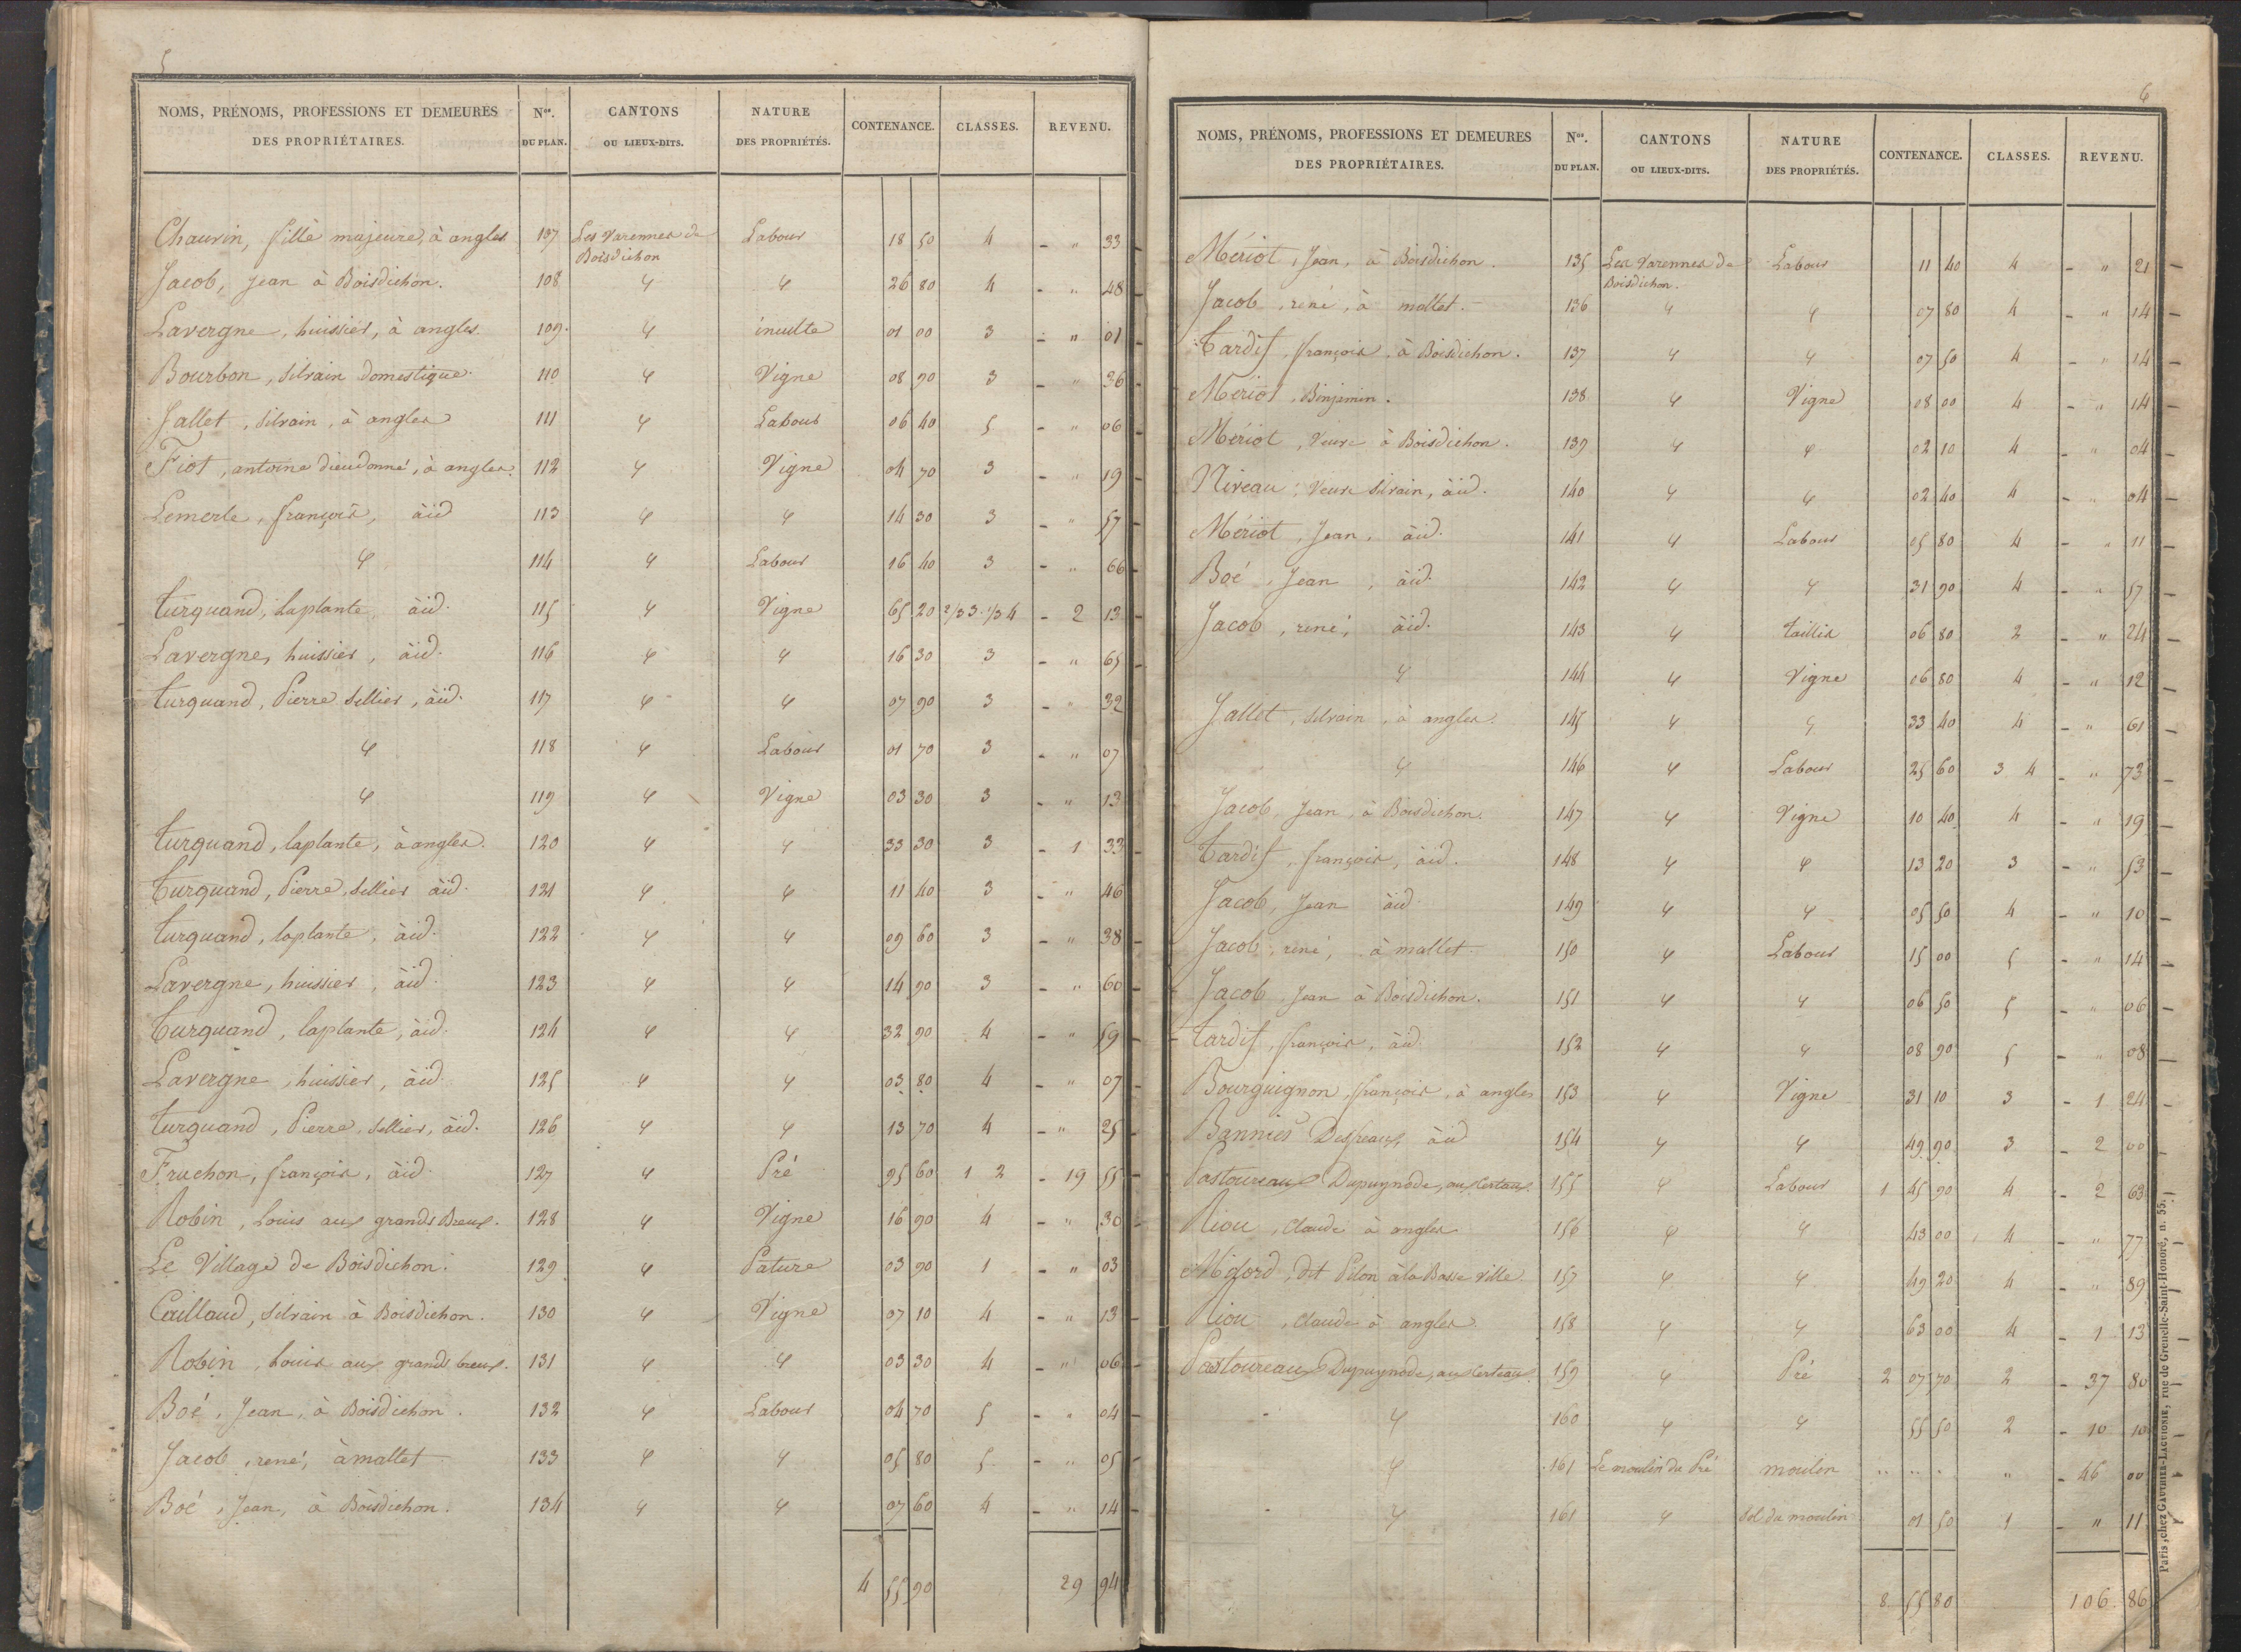 5
NOMS, PRÉNOMS, PROFESSIONS ET DEMEURES DES PROPRIÉTAIRES. Nos. DU PLAN. CANTONS OU LIEUX-DITS. NATURE DES PROPRIÉTÉS. CONTENANCE. CLASSES. REVENU.
Chauvin, fille majeure, à angles 107 Les Varennes de Boisdichon Labour 18 50 4 - " 33
Jacob, Jean à Boisdichon. 108 " " 26 80 4 - " 48
Lavergne, huissier, à angles. 109 " inculte 01 00 3 - " 01
Bourbon, silvain Domestique. 110 " Vigne 08 90 3 - " 36
Jallet, silvain, à angles 111 " Labour 06 40 5 - " 06
Fiot, antoine dieudonné, à angles. 112 " Vigne 04 70 3 - " 19
Lemerle, françois, àid 113 " " 14 30 3 - " 57
" 114 " Labour 16 40 3 - " 66
Turquand, Laplante, àid. 115 " Vigne 65 20 2/3 3. 1/3 4 - 2 13
Lavergne, huissier, àid. 116 " " 16 30 3 - " 65
Turquand, Pierre sellier, àid. 117 " " 07 90 3 - " 32
" 118 " Labour 01 70 3 - " 07
" 119 " Vigne 03 30 3 - " 13
Turquand, laplante, à angles. 120 " " 33 30 3 - 1 33
Turquand, Pierre, sellier àid. 121 " " 11 40 3 - " 46
Turquand, laplante, àid. 122 " " 09 60 3 - " 38
Lavergne, huissier, àid. 123 " " 14 90 3 - " 60
Turquand, laplante, àid. 124 " " 32 90 4 - " 59
Lavergne, huissier, àid. 125 " " 03 80 4 - " 07
Turquand, Pierre, sellier, àid. 126 " " 13 70 4 - " 25
Fruchon, françois, àid. 127 " Pré 95 60 1 2 - 19 55
Robin, Louis aux grands Breux. 128 " Vigne 16 90 4 - " 30
Le Village de Boisdichon. 129 " Pature 03 90 1 - " 03
Caillaud, silvain à Boisdichon. 130 " Vigne 07 10 4 - " 13
Robin, Louis aux grands breux. 131 " " 03 30 4 - " 06
Boé, Jean, à Boisdichon. 132 " Labour 04 70 5 - " 04
Jacob, rené, à mallet 133 " " 05 80 5 - " 05
Boé, Jean, à Boisdichon. 134 " " 07 60 4 - " 14
4 55 90 29 94
6
NOMS, PRÉNOMS, PROFESSIONS ET DEMEURES DES PROPRIÉTAIRES. Nos. DU PLAN. CANTONS OU LIEUX-DITS. NATURE DES PROPRIÉTÉS. CONTENANCE. CLASSES. REVENU.
Mériot, Jean, à Boisdichon. 135 Les Varennes de Boisdichon. Labour 11 40 4 - " 21
Jacob, rené, à mallet. 136 " " 07 80 4 - " 14
Tardif, françois, à Boisdichon. 137 " " 07 50 4 - " 14
Mériot, Binjimin. 138 " Vigne 08 00 4 - " 14
Mériot, Veuve à Boisdichon. 139 " " 02 10 4 - " 04
Niveau, Veuve silvain, àid. 140 " " 02 40 4 - " 04
Mériot, Jean, àid. 141 " Labour 05 80 4 - " 11
Boé, Jean, àid. 142 " " 31 90 4 - " 57
Jacob, rené, àid. 143 " taillis 06 80 2 - " 24
" 144 " Vigne 06 80 4 - " 12
Jallet, silvain, à angles. 145 " " 33 40 4 - " 61
" 146 " Labour 25 60 3 4 - " 73
Jacob, Jean, à Boisdichon. 147 " Vigne 10 40 4 - " 19
Tardif, françois, àid. 148 " " 13 20 3 - " 53
Jacob, Jean àid. 149 " " 05 50 4 - " 10
Jacob, rené, à mallet. 150 " Labour 15 00 5 - " 14
Jacob, Jean à Boisdichon. 151 " " 06 50 5 - " 06
Tardif, françois, àid. 152 " " 08 90 5 - " 08
Bourguignon, françois, à angles 153 " Vigne 31 10 3 - 1 24
Bannier Desfeaux àid 154 " " 49 90 3 - 2 00
Pastoureau Dupuynode, aux Certaux. 155 " Labour 1 45 90 4 - 2 63
Riou, Claude à angles 156 " " 43 00 4 - " 77
Migord, dit Pilon à la Basse ville 157 " " 49 20 4 - " 89
Riou, Claude à angles. 158 " " 63 00 4 - 1 13
Pastoureau Dupuynode, aux Certaux. 159 " Pré 2 07 70 2 - 37 80
" 160 " " 55 50 2 - 10 10
" 161 Le moulin du Pré moulin " " " " - 46 00
" 161 " Sol du moulin 01 50 1 - " 11
8 55 80 106 86
Paris, chez GAUTHIER-LAGUIONIE, rue de Grenelle-Saint-Honoré, n. 55.